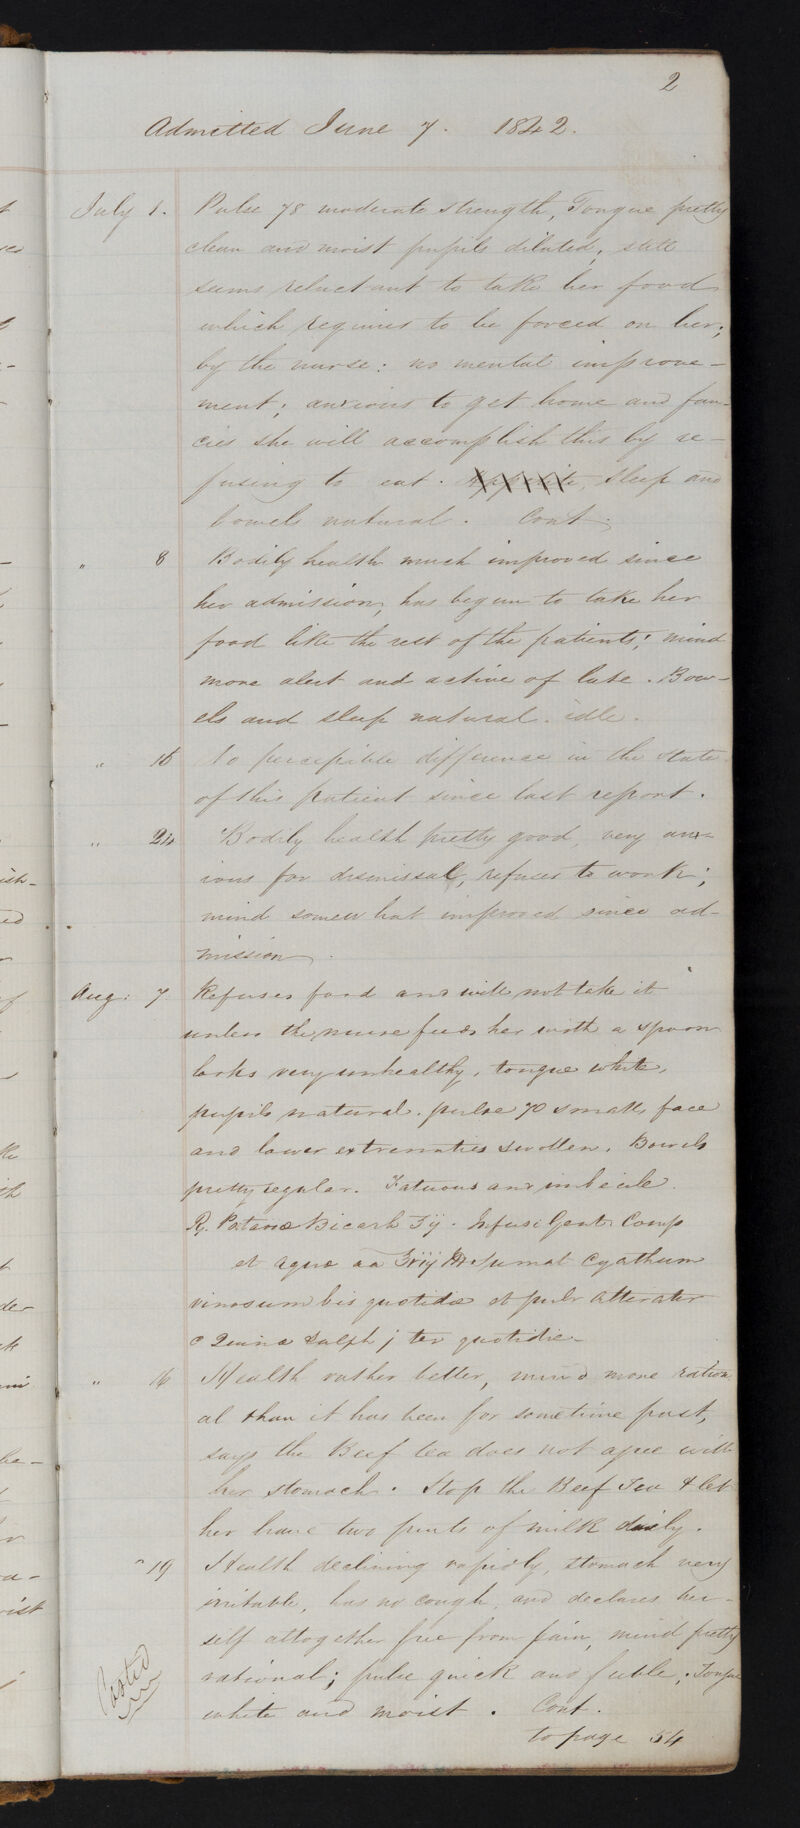 2
Admitted June 7. 1842.
July 1. Pulse 78 moderate strength, Tongue pretty
clean and moist pupils dilated; still
seems reluctant to take her food
which requires to be forced on her;
by the nurse: no mental improve-
ment; anxious to get home and fan-
cies she will accomplish this by re-
fusing to eat. Sleep and
bowels natural. Cont.
" 8 Bodily health much improved since
her admission, has begun to take her
food like the rest of the patients; mind
more alert and active of late. Bow-
els and sleep natural. idle.
" 16 No perceptible difference in the state
of this patient since last report.
" 24 Bodily health pretty good, very anx-
ious for dismissal, refuses to work;
mind somewhat improved since ad-
mission.
Aug: 7 Refuses food and will not take it
unless the nurse feeds her with a spoon
looks very unhealthy, tongue white,
pupils natural. pulse 70 small, face
and lower extremities swollen. Bowels
pretty regular. Fatuous and imbecile.
R. Potassæ Bicarb ʒij. Infusi Gent. Comp
et aquæ aa ℥iij sumat cyathum
vinosum bis quotidie et pulv
c Quinæ Sulph j ter quotidie
" 16 Health rather better, mind more ration
al than it has been for sometime past,
says the Beef tea does not agree with
her stomach. Stop the Beef Tea & let
her have two pints of milk daily.
" 19 Health declining rapidly, stomach very
irritable, has no cough, and declares her-
self altogether free from pain, mind pretty
rational; pulse quick and feeble; Tongue
white and moist. Cont.
to page 54
Posted